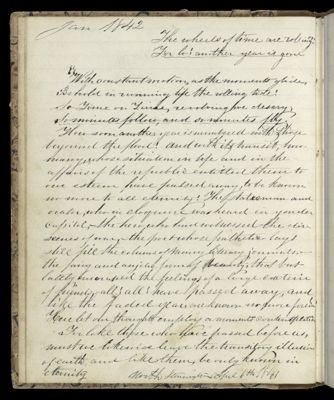 Jan 1842
The wheels of time are rolling
For lo! another year is gone
With constant motion, as the moments glide,
Behold in running life the rolling tide!
How soon, another year is numbered with those
beyond the flood! And with its transit, how
many, whose situation in life and in the
affairs of the republic entitled them to
our esteem, have passed away, to be known
no more to all eternity! The statesman and
orator, who in eloquence was heard in yonder
Capitol, the hero, who had witnessed the
scenes of war, the poet whose pathetic lays
still fill the columns of many literary journals
the young and
of friends, all! all! have passed away, and
like the faded year, are known no more forever!
Here let our thoughts employ a moments contemplation
For like those who have passed before us,
must we likewise leave the transitory illusion
of earth, and like them, be only known in
eternity